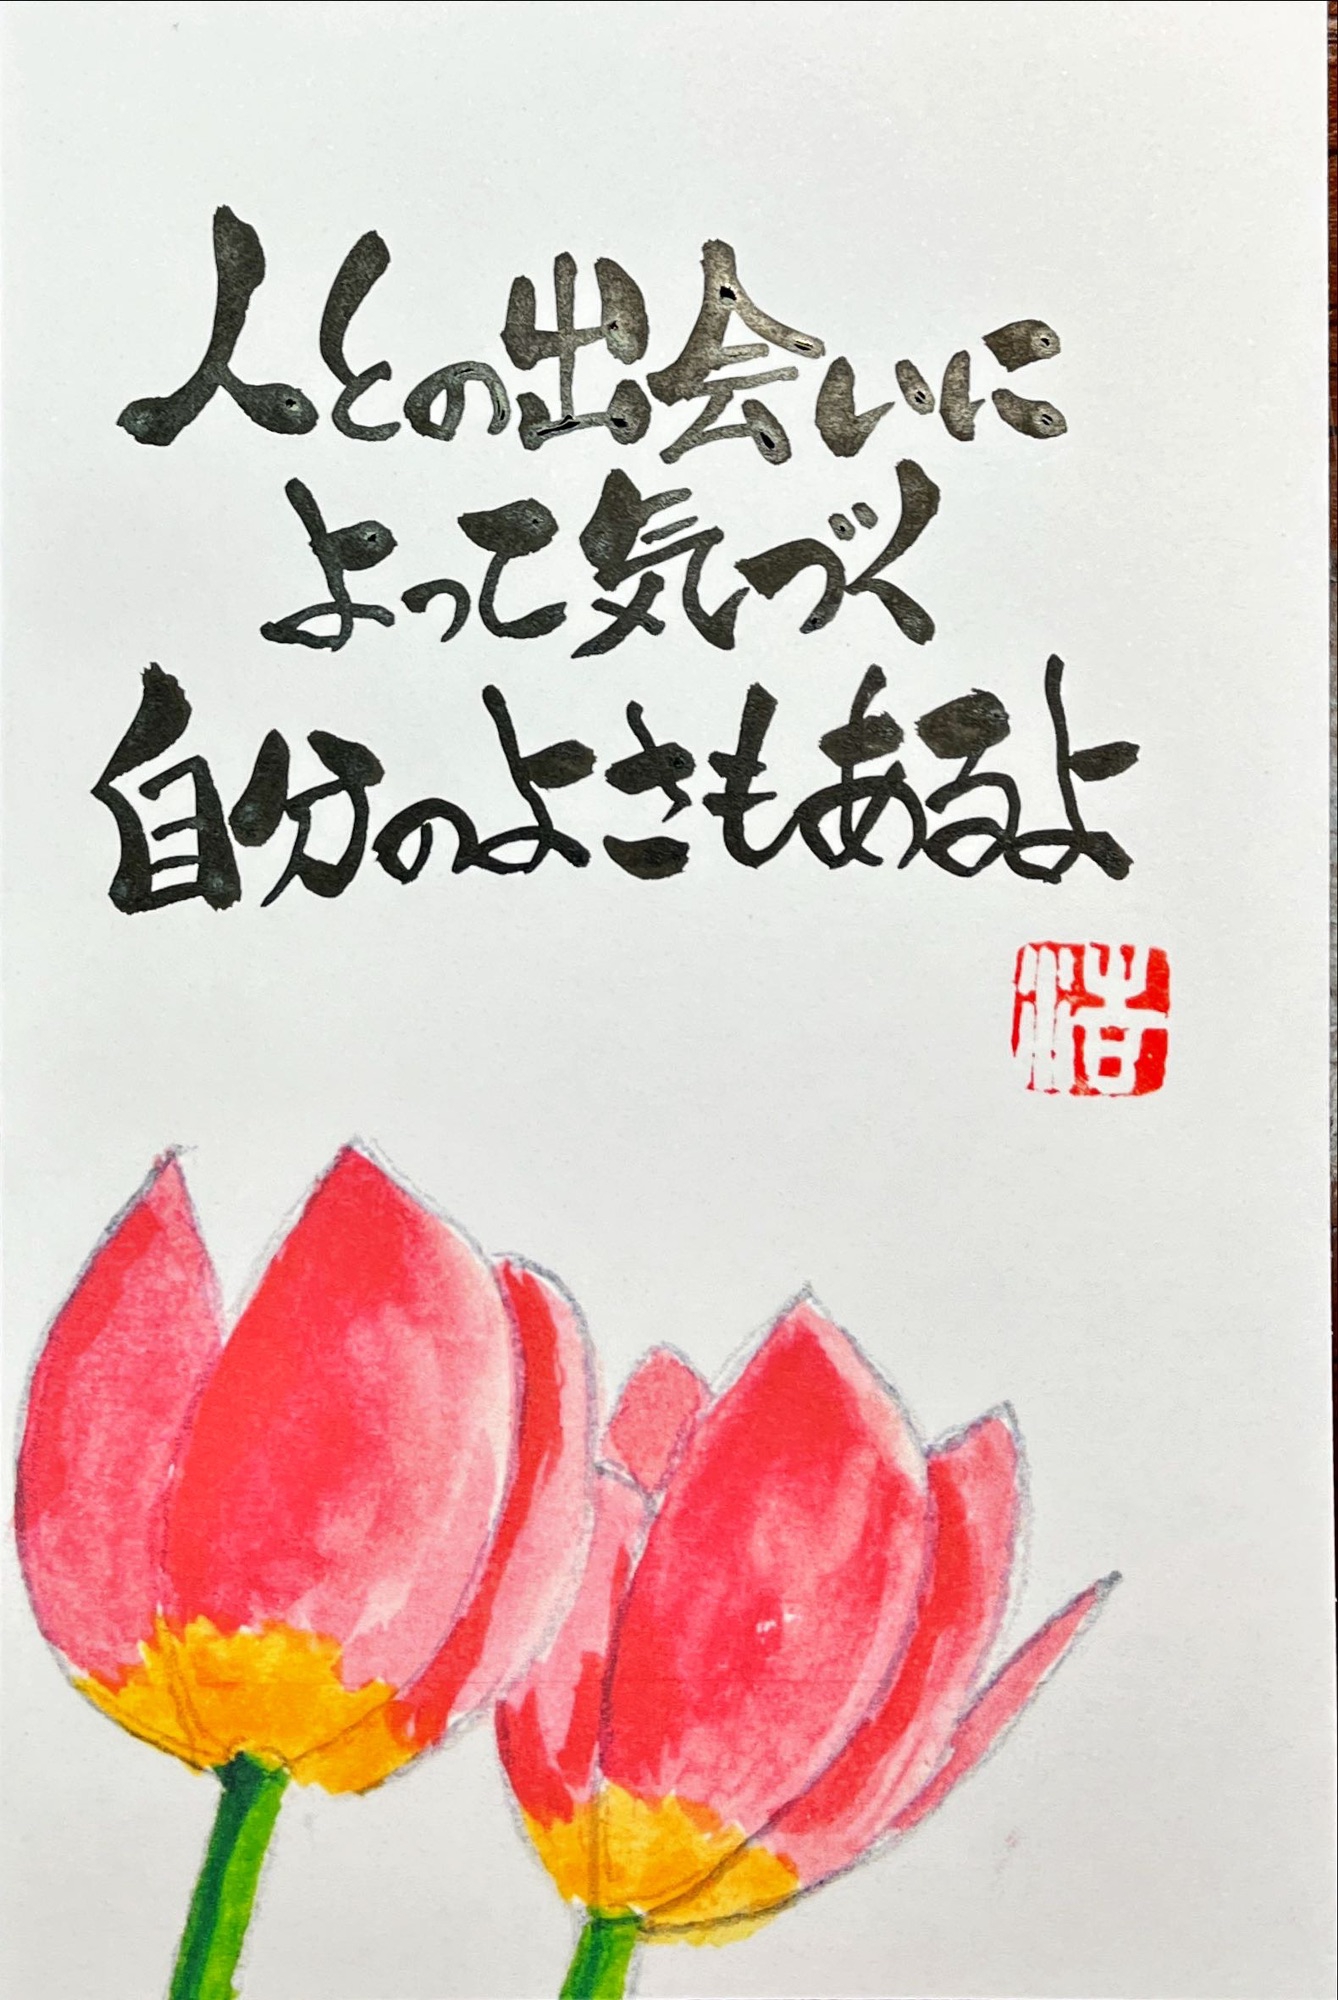 人との出会いに
よって気づく
自分のよさもあるよ